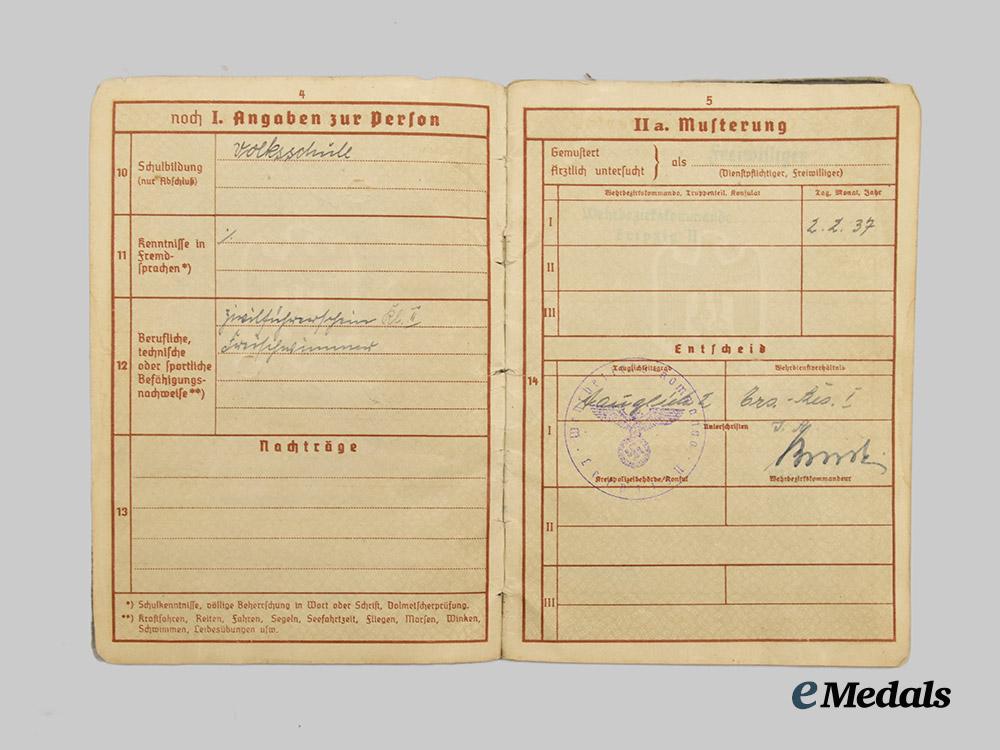 4
noch I. Angaben zur Person
10 Schulbildung
(nur Abschluß)
Volksschule
11 Kenntnisse in
Fremd-
sprachen*)
⁒
12 Berufliche,
technische
oder sportliche
Befähigungs-
nachweise**)
Zivilführerschein Kl. II
Freischwimmer
Nachträge
13
*) Schulkenntnisse, völlige Beherrschung in Wort oder Schrift, Dolmetscherprüfung.
**) Kraftfahren, Reiten, Fahren, Segeln, Seefahrtzeit, Fliegen, Morsen, Winken,
Schwimmen, Leibesübungen usw.
5
II a. Musterung
Gemustert
Ärztlich untersucht
als
Freiwilliger
(Dienstpflichtiger, Freiwilliger)
Wehrbezirkskommando, Truppenteil, Konsulat
Tag, Monat, Jahr
I
Wehrbezirkskommando
Leipzig II
2.2.37
II
III
Entscheid
14
Tauglichkeitsgrad
Wehrdienstverhältnis
I
tauglich 2
Ers.-Res. I
Unterschriften
Kreispolizeibehörde/Konsul
Wehrbezirkskommandeur
II
III
eMedals